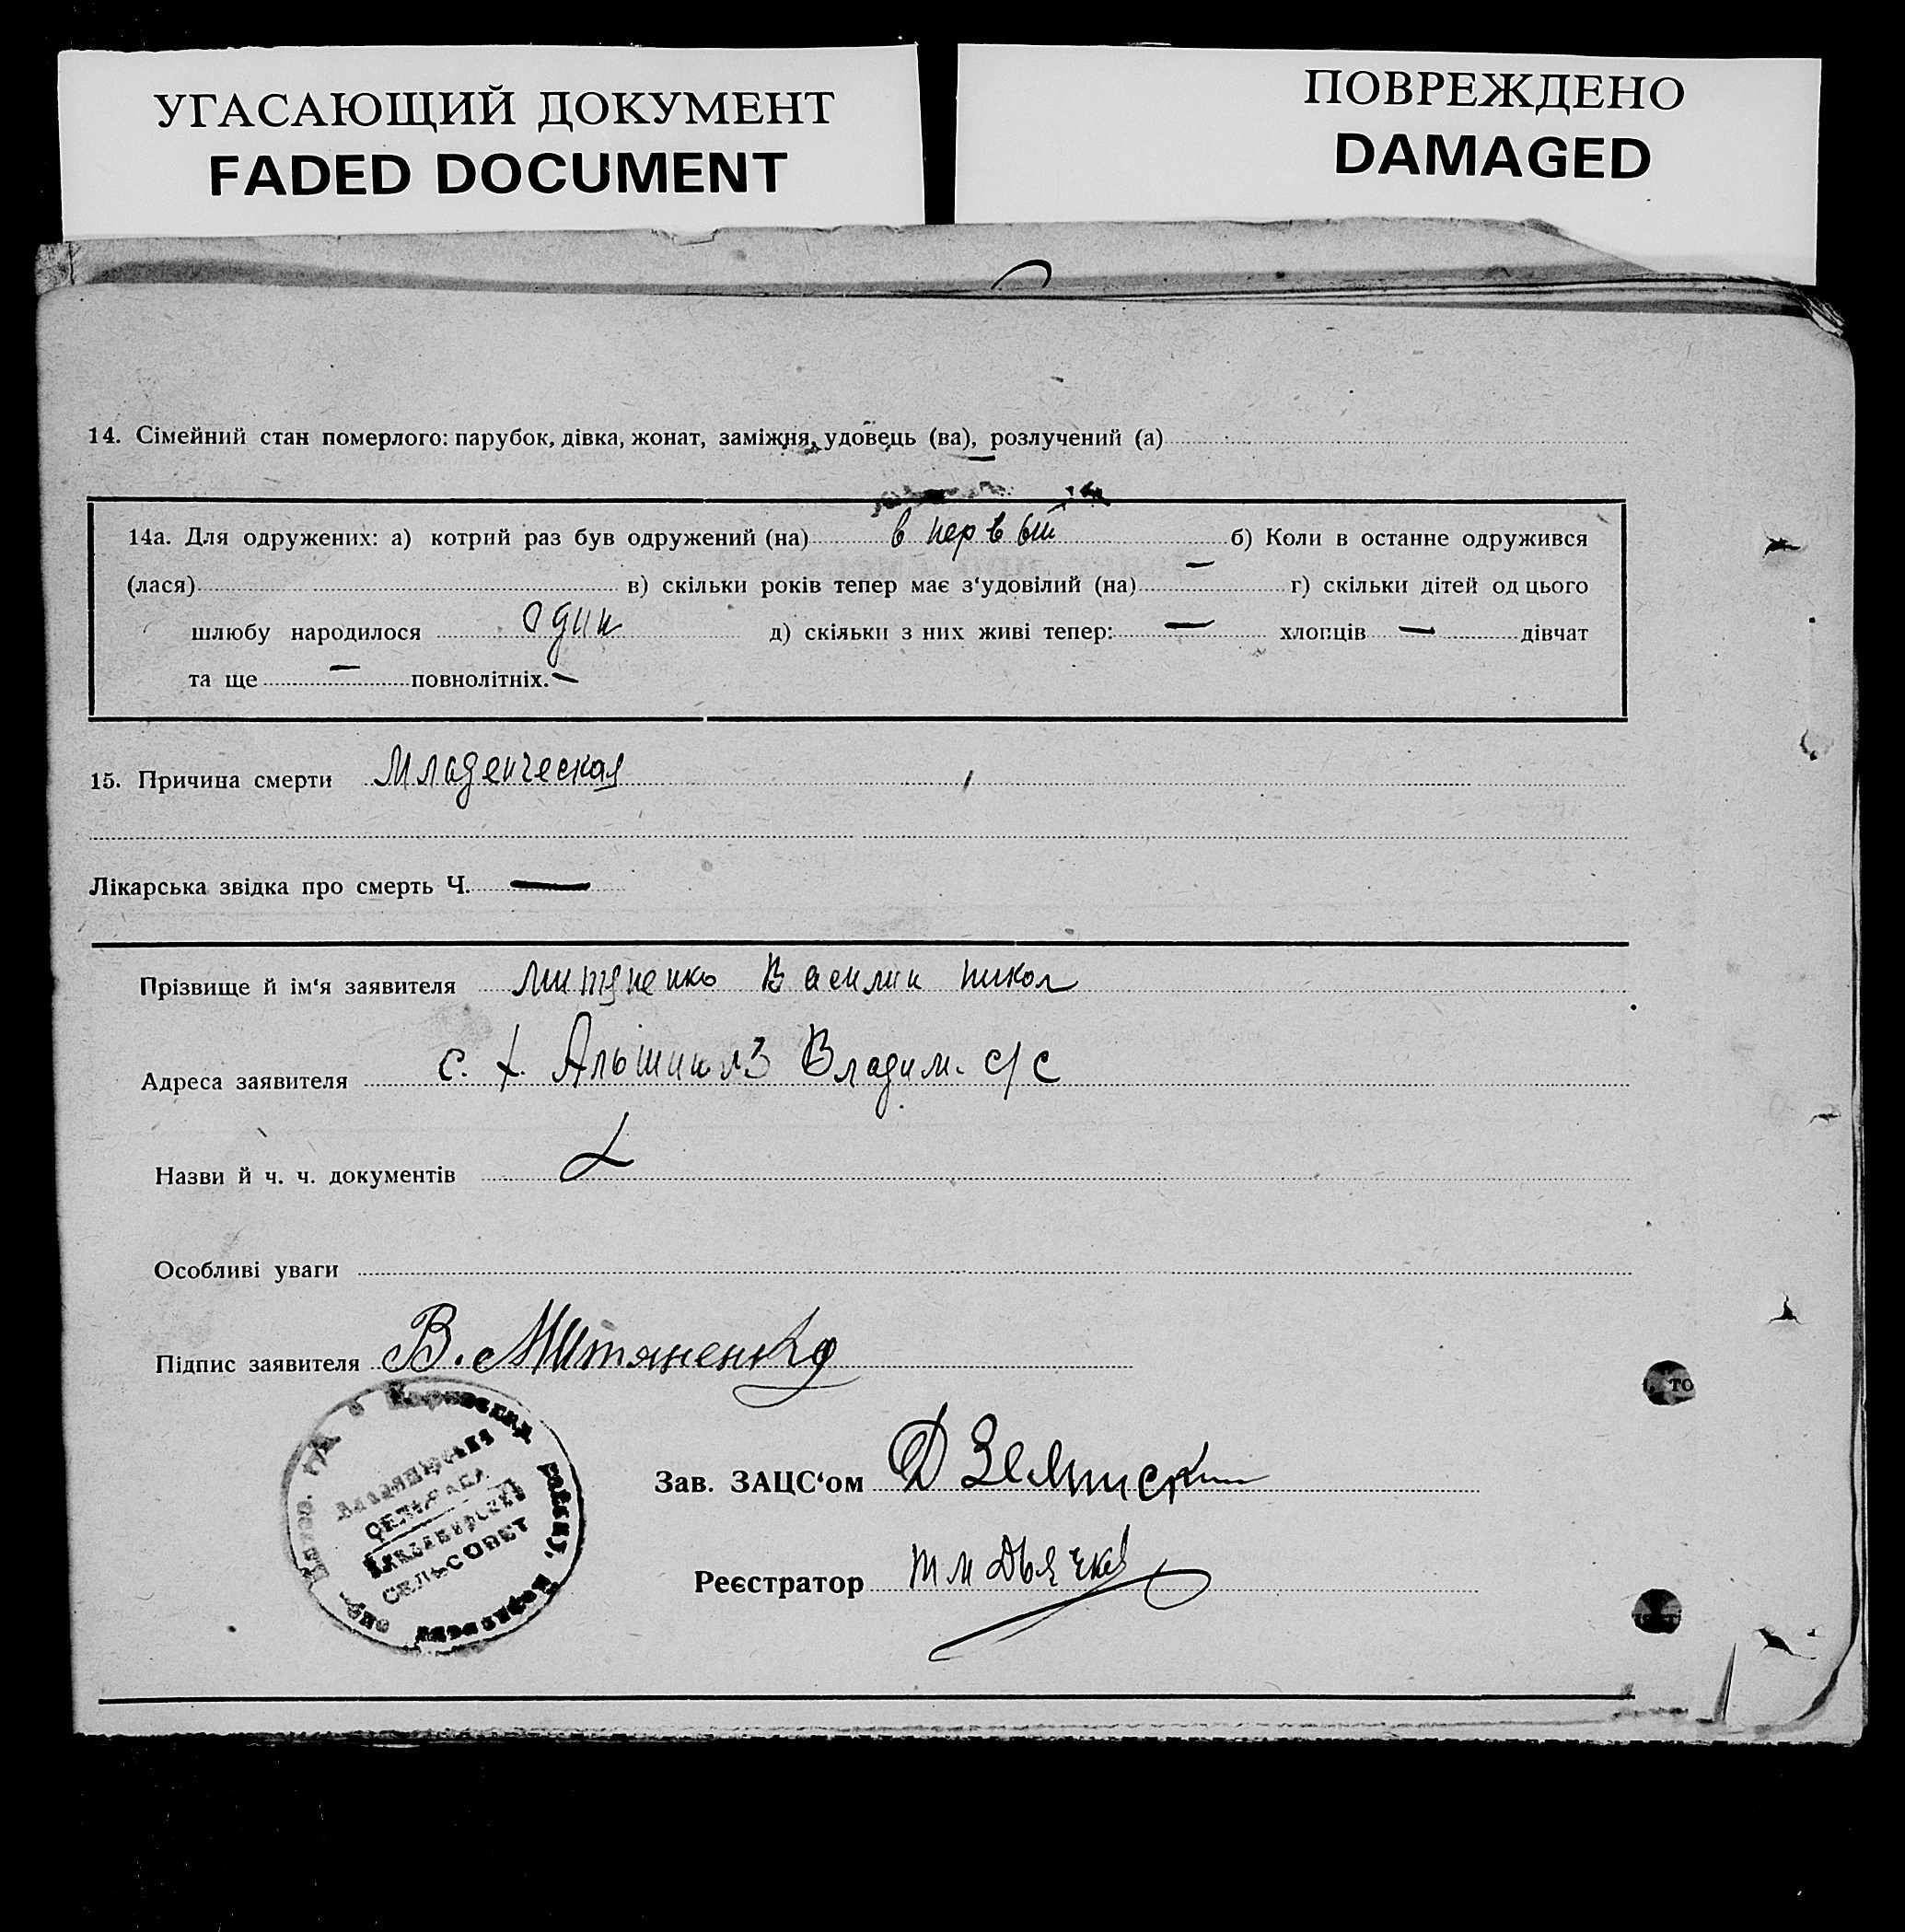 УГАСАЮЩИЙ ДОКУМЕНТ
FADED DOCUMENT
ПОВРЕЖДЕНО
DAMAGED
14. Сімейний стан померлого: парубок, дівка, жонат, заміжня, удовець (ва), розлучений (а)
14а. Для одружених: а) котрий раз був одружений (на) в первый б) Коли в останнє одружився
(лася) в) скільки років тепер має з‘удовілий (на) — г) скільки дітей од цього
шлюбу народилося один д) скільки з них живі тепер: — хлопців — дівчат
та ще — повнолітніх. —
15. Причина смерти Младенческая
Лікарська звідка про смерть Ч. —
Прізвище й ім‘я заявителя Митяненко Василии Никол
Адреса заявителя с. х. Владим. с/с
Назви й ч. ч. документів
Особливі уваги
Підпис заявителя В. Митяненко
Зав. ЗАЦС‘ом
Реєстратор
СЕЛЬСОВЕТ
то